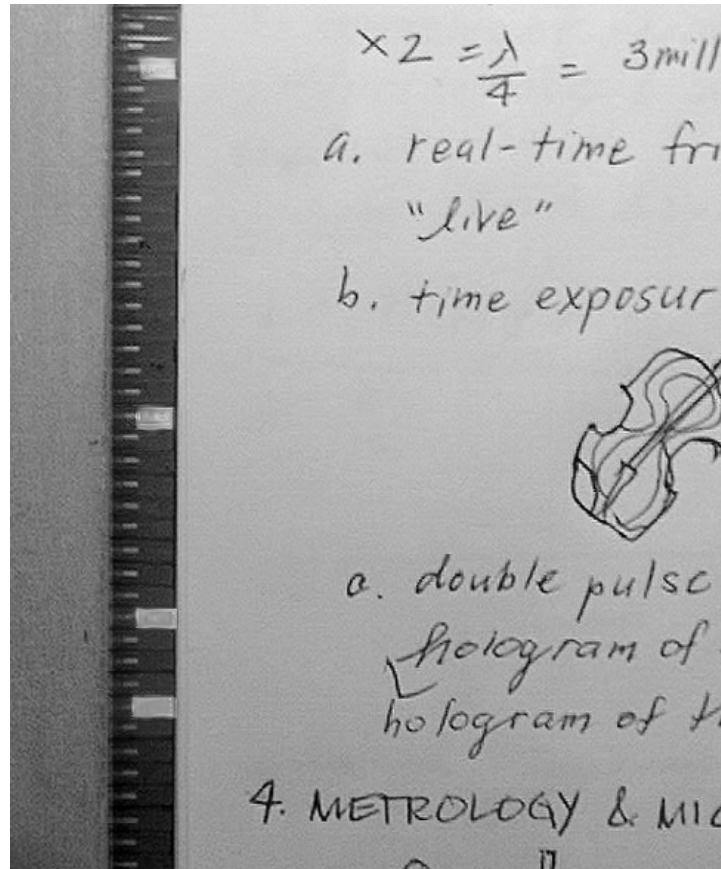 ×2 = λ/4 = 3mill
a. real-time fri
"live"
b. time exposur
a. double pulse
hologram of
hologram of th
4. METROLOGY & MIC